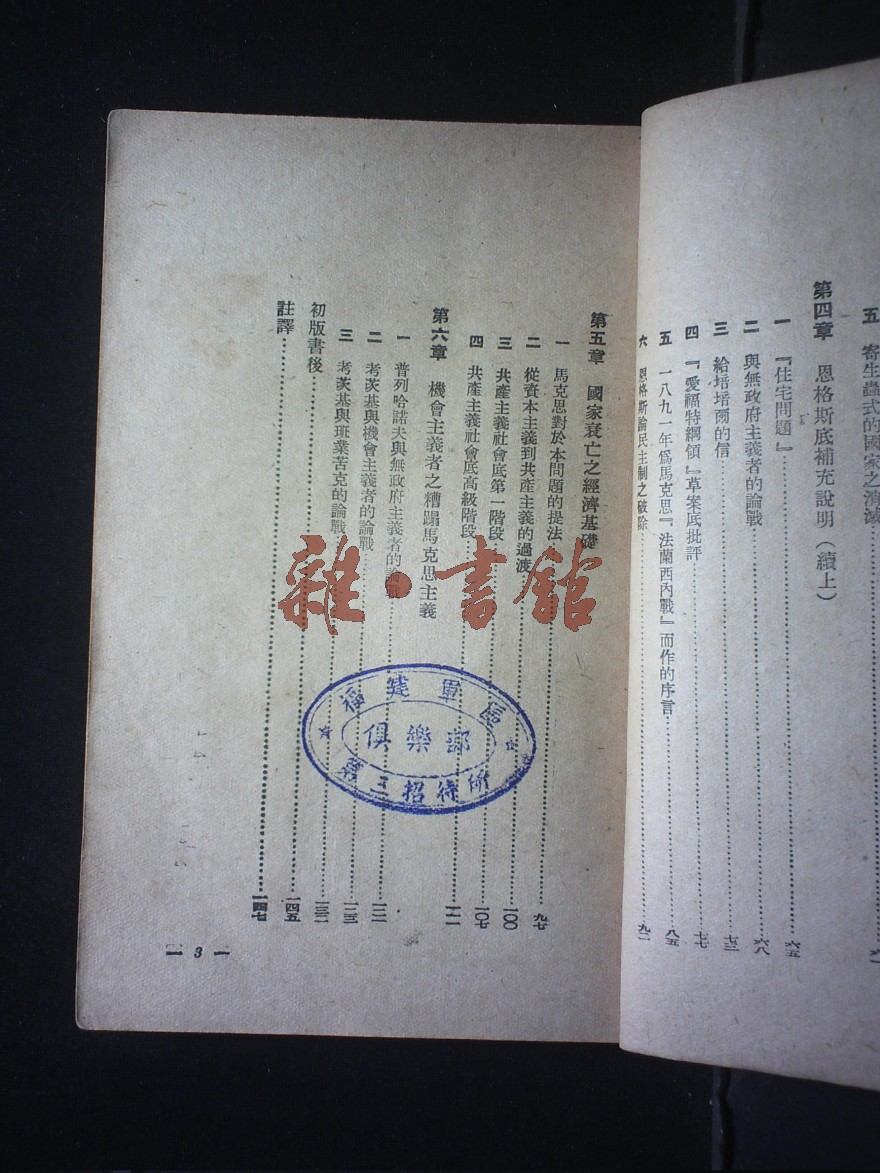 五 寄生蟲式的國家之消滅
第四章 恩格斯底補充說明(續上)
一 『住宅問題』 六五
二 與無政府主義者的論戰 六八
三 給培培爾的信 七三
四 『愛福特綱領』草案底批評 七七
五 一八九一年爲馬克思『法蘭西內戰』而作的序言 八五
六 恩格斯論民主制之破除 九二
第五章 國家衰亡之經濟基礎
一 馬克思對於本問題的提法 九七
二 從資本主義到共產主義的過渡 一〇〇
三 共產主義社會底第一階段 一〇七
四 共產主義社會底高級階段
第六章 機會主義者之糟蹋馬克思主義
一 普列哈諾夫與無政府主義者的論戰
二 考茨基與機會主義者的論戰
三 考茨基與班業苦克的論戰
初版書後 一四五
註譯 一四七
— 3 —
雜·書館
福建軍區
俱樂部
第三招待所